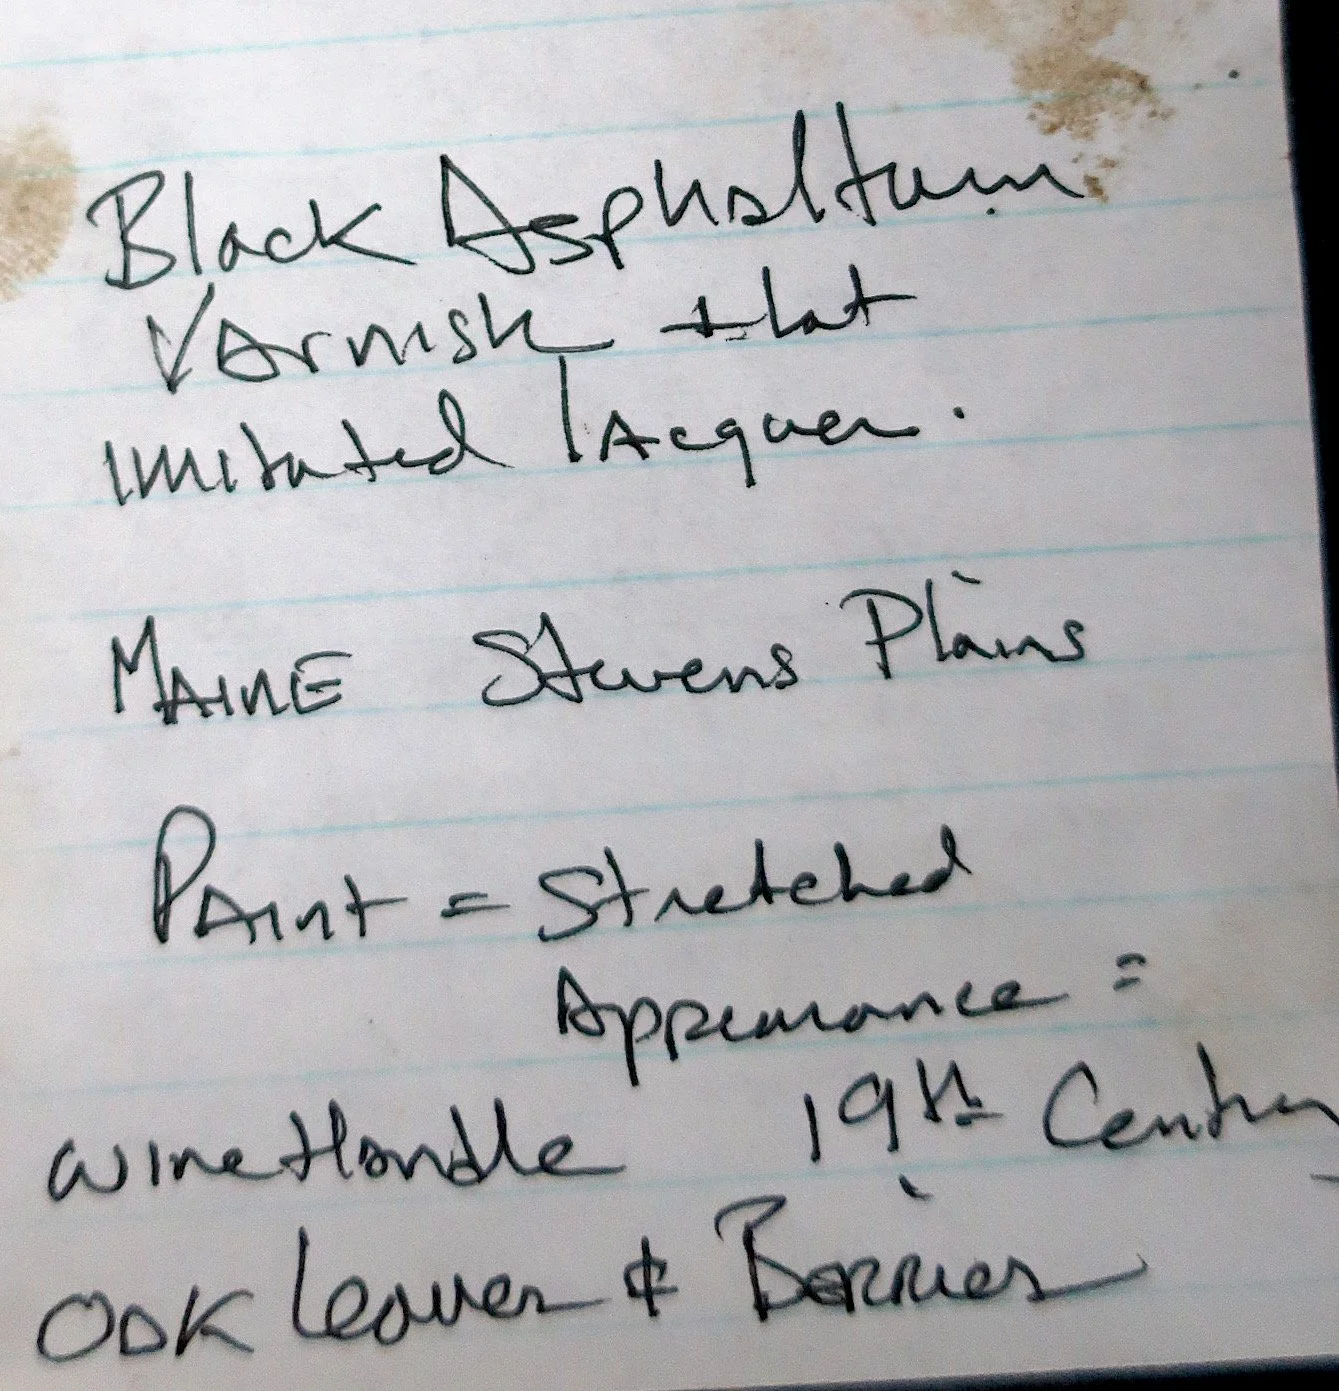 Black Asphaltum
Varnish that
imitated lacquer.
MAINE Stevens Plains
Paint = Stretched
Appearance =
wire Handle 19th Century
Oak Leaves & Berries